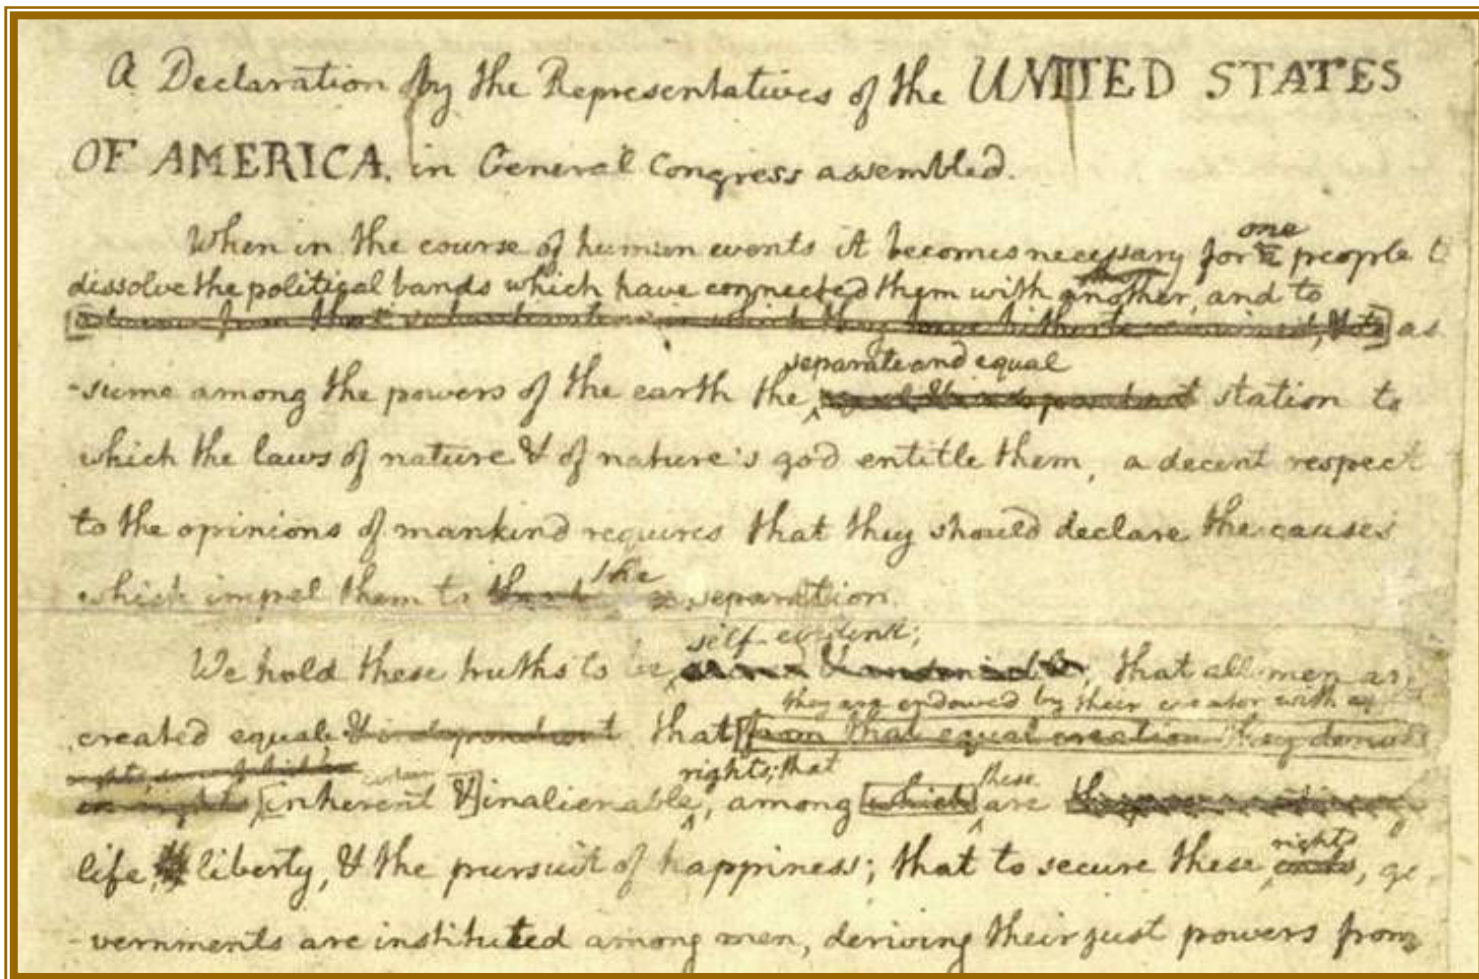 A Declaration by the Representatives of the UNITED STATES
OF AMERICA, in General Congress assembled.
When in the course of human events it becomes necessary for one people t
dissolve the political bands which have connected them with another, and to
as
separate and equal
-sume among the powers of the earth the station to
which the laws of nature & of nature's god entitle them, a decent respect
to the opinions of mankind requires that they should declare the causes
which impel them to the separation.
self-evident;
We hold these truths to be, that all men ar
they are endowed by their creator with
created equal & independent that [from that equal creation they derive
rights; that these
[inherent &] inalienable, among [which] are
rights
life, liberty, & the pursuit of happiness; that to secure these ends, go
-vernments are instituted among men, deriving their just powers from